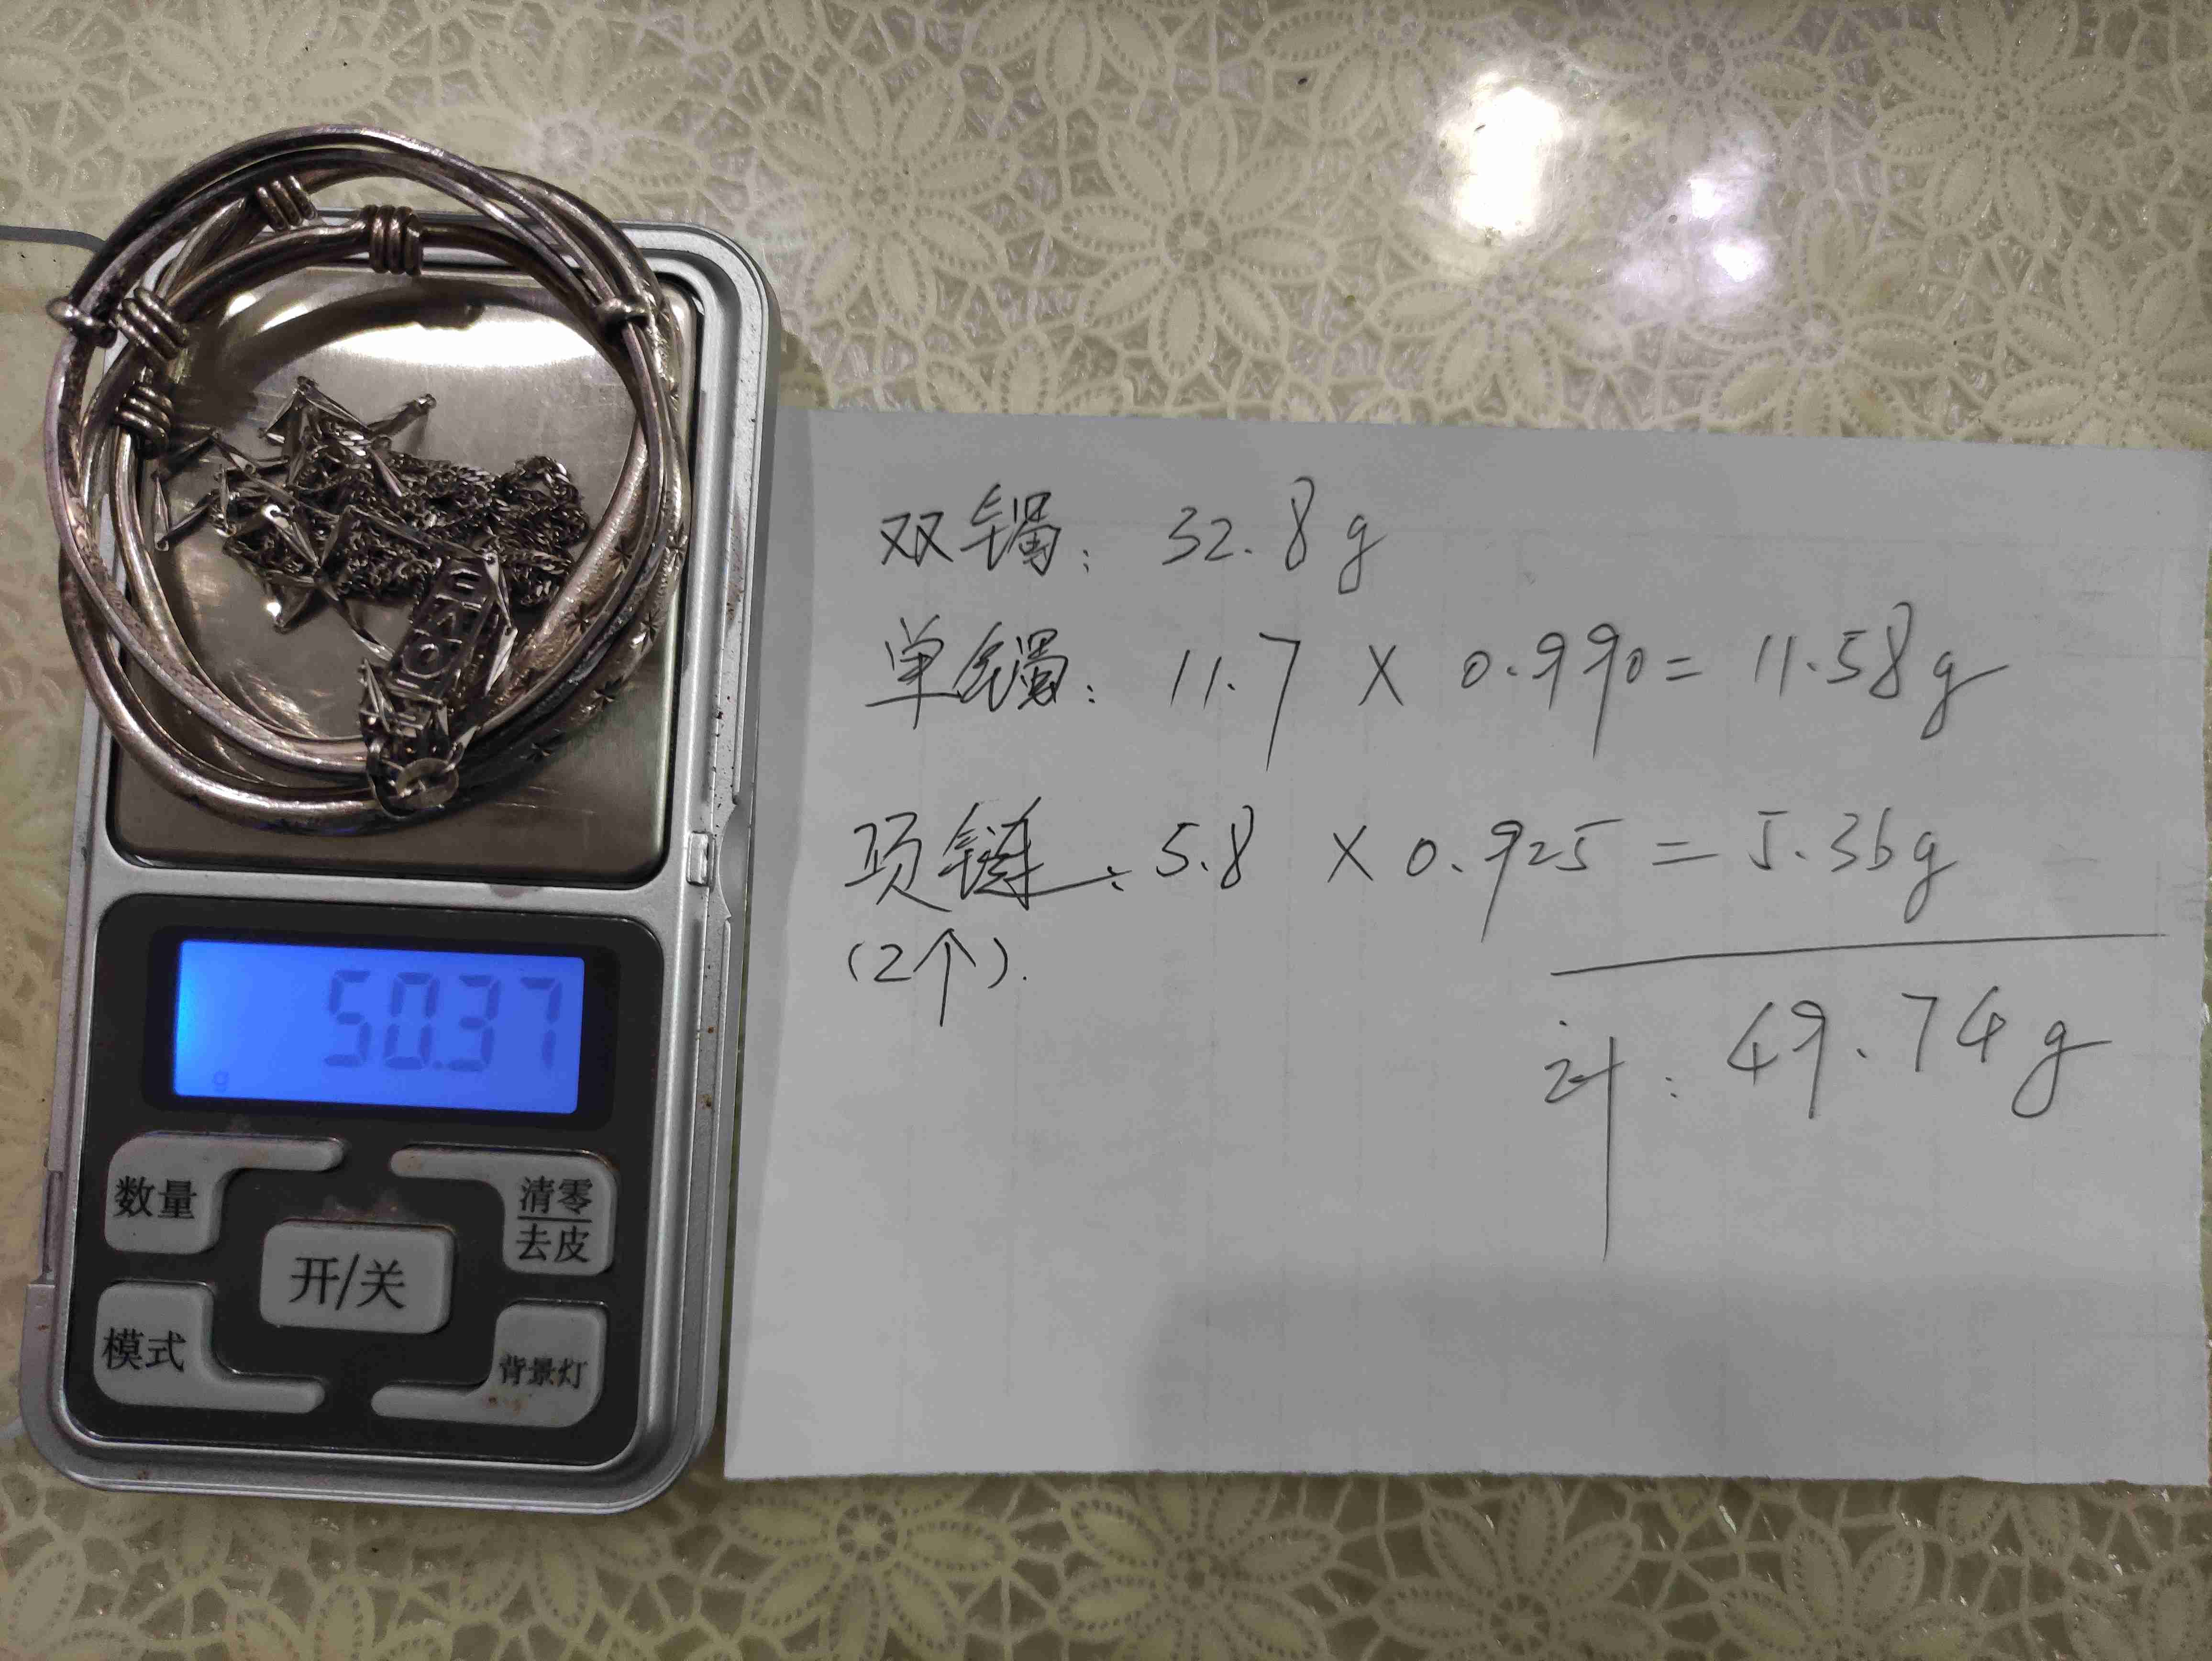 50.37
g
数量
清零
去皮
开/关
模式
背景灯
双镯: 32.8g
单镯: 11.7 × 0.990 = 11.58g
项链: 5.8 × 0.925 = 5.36g
(2个).
计: 49.74g